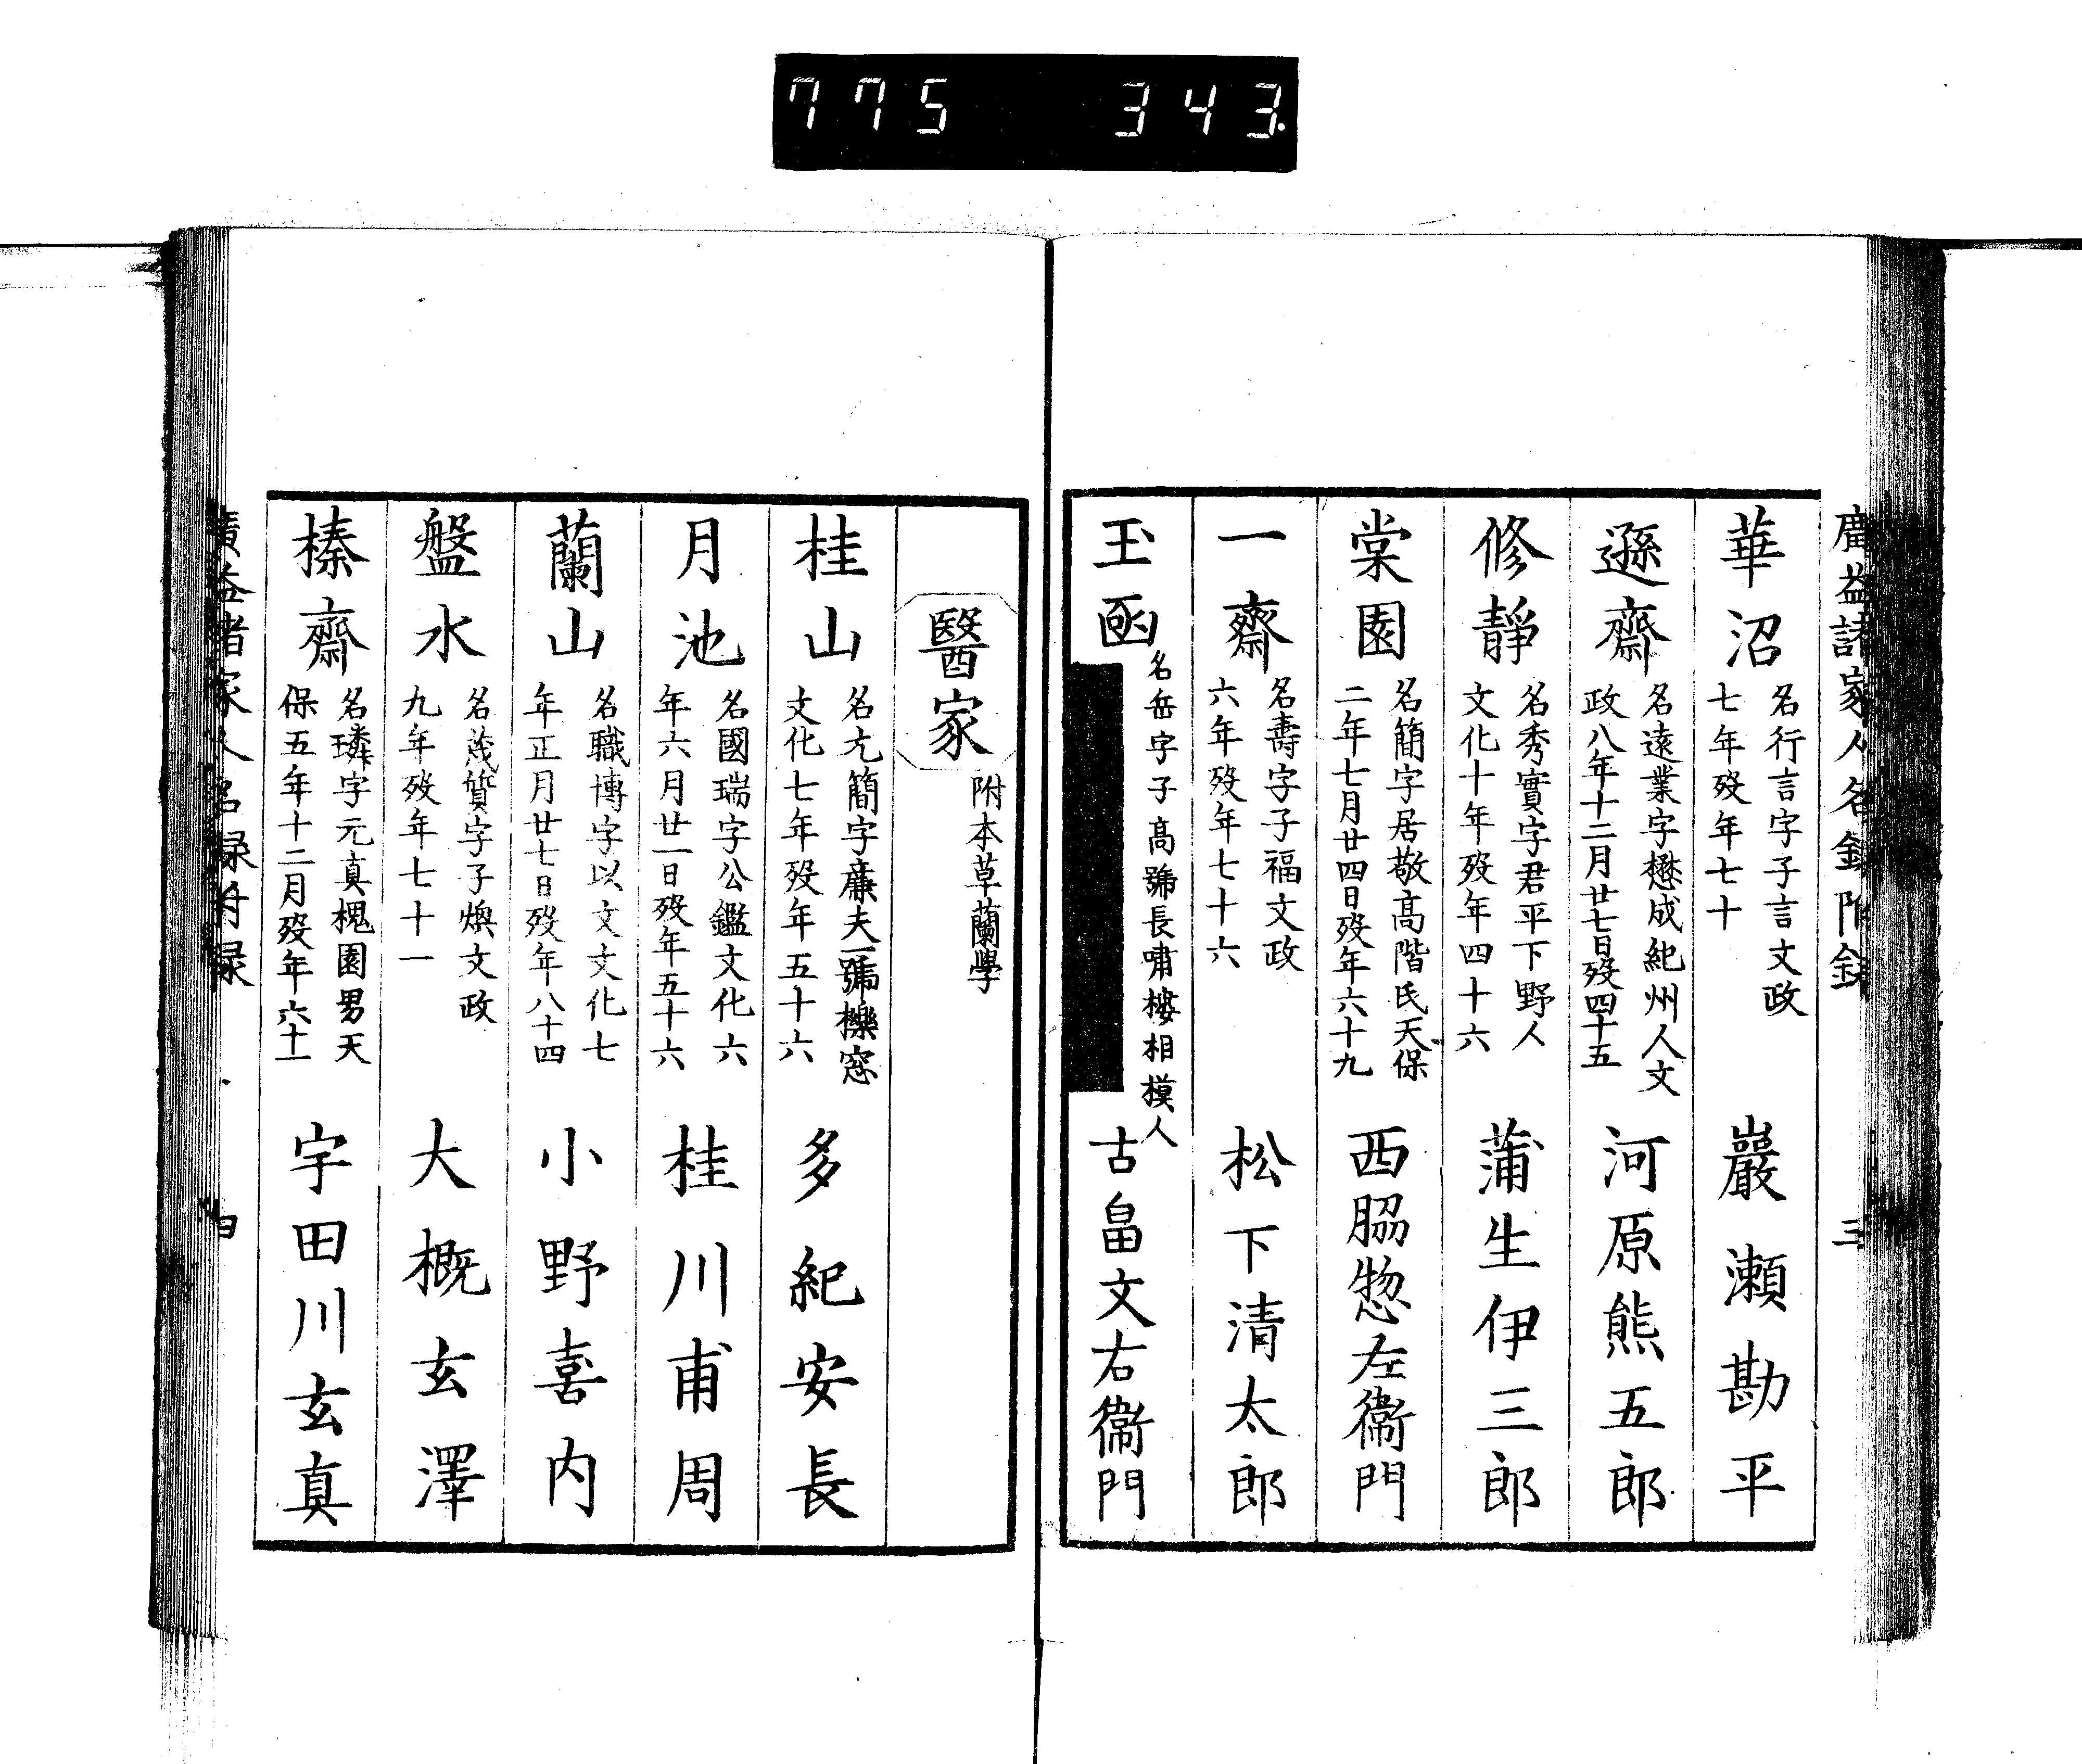 775 343
廣益諸家人名録附録 三
華沼 名行言字子言文政七年歿年七十 巖瀬勘平
遜齋 名遠業字懋成紀州人文政八年十二月廿七日歿四十五 河原熊五郎
修靜 名秀實字君平下野人文化十年歿年四十六 蒲生伊三郎
棠園 名簡字居敬髙階氏天保二年七月廿四日歿年六十九 西脇惣左衞門
一齋 名壽字子福文政六年歿年七十六 松下清太郎
玉函 名岳字子髙號長嘯樓相模人 古畠文右衞門
醫家 附本草蘭學
桂山 名元簡字廉夫一號櫟窓文化七年歿年五十六 多紀安長
月池 名國瑞字公鑑文化六年六月廿一日歿年五十六 桂川甫周
蘭山 名職博字以文文化七年正月廿七日歿年八十四 小野喜内
盤水 名茂質字子煥文政九年歿年七十一 大概玄澤
榛齋 名璘字元真槐園男天保五年十二月歿年六十一 宇田川玄真
廣益諸家人名録附録 四